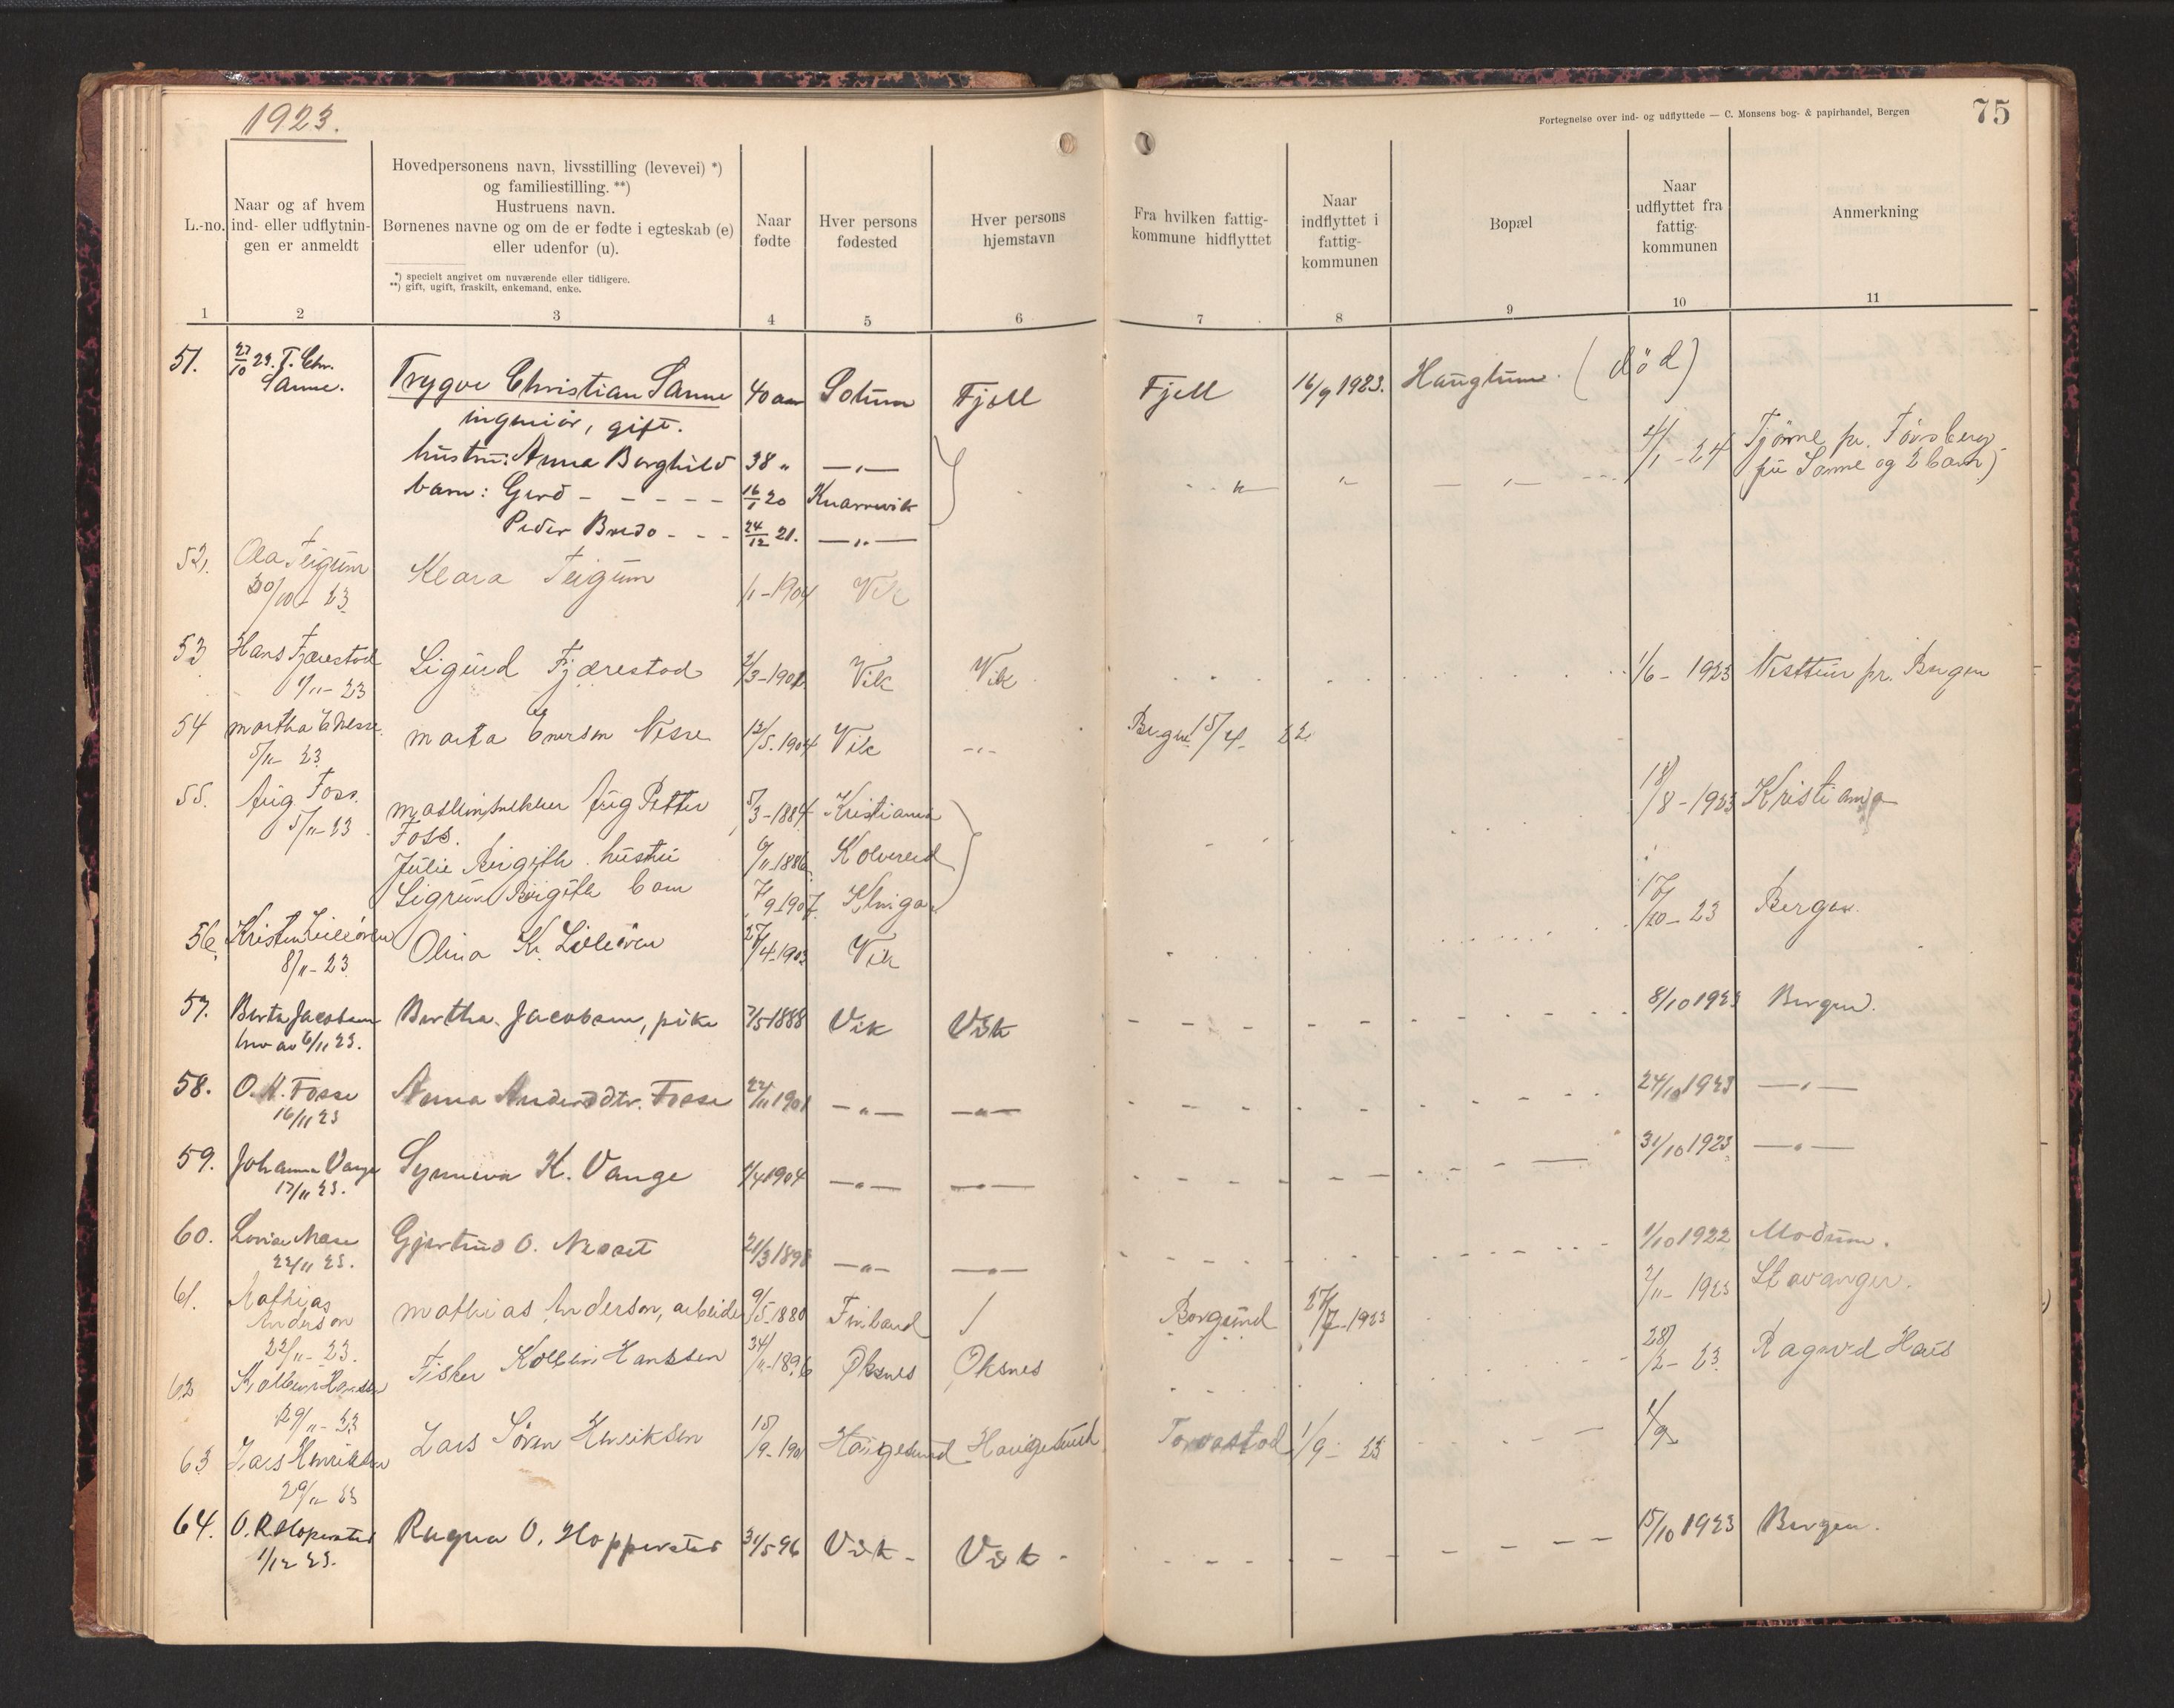 1923.
Fortegnelse over ind- og udflyttede — C. Monsens bog- & papirhandel, Bergen
75
L.-no.
Naar og af hvem
ind- eller udflytnin-
gen er anmeldt
Hovedpersonens navn, livsstilling (levevei) *)
og familiestilling. **)
Hustruens navn.
Børnenes navne og om de er fødte i egteskab (e)
eller udenfor (u).
*) specielt angivet om nuværende eller tidligere.
**) gift, ugift, fraskilt, enkemand, enke.
Naar
fødte
Hver persons
fødested
Hver persons
hjemstavn
Fra hvilken fattig-
kommune hidflyttet
Naar
indflyttet i
fattig-
kommunen
Bopæl
Naar
udflyttet fra
fattig-
kommunen
Anmerkning
1 2 3 4 5 6 7 8 9 10 11
51. 27/10 23. T. Chr. Sanne. Trygve Christian Sanne 40 aar Fjell Fjell 16/9 1923. (død)
ingeniør, gift.
hustru: Anna Borghild 38 " —"— 2/1-24 Tjøme pr. Tønsberg
barn: Gerd - - - - - 16/1 20 Knarrevik (fru Sanne og 2 barn)
Peder Bredo - - - 24/12 21. —"—
52. Ola Teigum 30/10-23 Klara Teigum 1/1-1904 Vik
53 Hans Fjærestad 1/11-23 Sigurd Fjærestad Vik Vik 1/6-1923 Nesttun pr. Bergen
54 Martha E Nesse 5/11-23 Marta Enersen Nesse 12/5.1904 Vik -"- Bergen 15/4-22
55. Aug. Foss. 5/11-23 Aug Petter 5/3-1884 Kristiania 18/8-1923 Kristiania
Foss.
Julie Birgith hustru 6/11-1886 Kolvereid
Sigrun Birgith barn 7/9-1907
56. Kristen Lilleøren 8/11-23 Olina K. Lilleøren 27/4-1903 Vik 17/10-23 Bergen.
57. Berta Jacobsen brev av 6/11 23. Bertha Jacobsen, pike 2/5-1888 Vik Vik 8/10 1923 Bergen.
58. O. K. Fosse 16/11 23 Anna Andersdtr. Fosse 22/11 1901 —"— —"— 24/10 1923 —"—
59. Johanna Vange 17/11 23. Synneva K. Vange 1/4 1904 —"— —"— 31/10 1923 —"—
60. 22/11 23. Gjertrud O. 21/3 1898 —"— —"— 1/10 1922 Modum.
61. Mathias Anderson 22/11-23. Mathias Anderson, arbeider 9/5-1880 Finland / Borgund 27/7-1923 2/11-1923 Stavanger.
62 29/11-23 Fisker Hansen Øksnes Øksnes 28/2-23
63 Lars Henriksen 29/11 23 Lars Søren Henriksen Haugesund Haugesund Torvastad 1/9-23 1/9
64. O. R. Hopperstad 1/12 23. Ragna O. Hopperstad 31/5 96 Vik - Vik - 15/10 1923 Bergen.